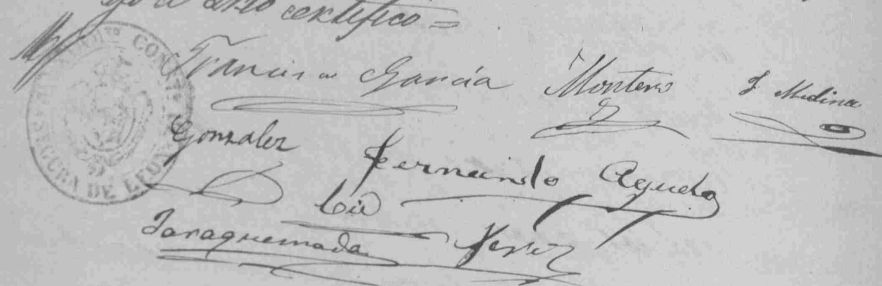 certifico =
Francisco García Montero J Medina
Gonzalez Fernando Agudo
Cid
Jaraquemada Jerez
SEGURA DE LEON